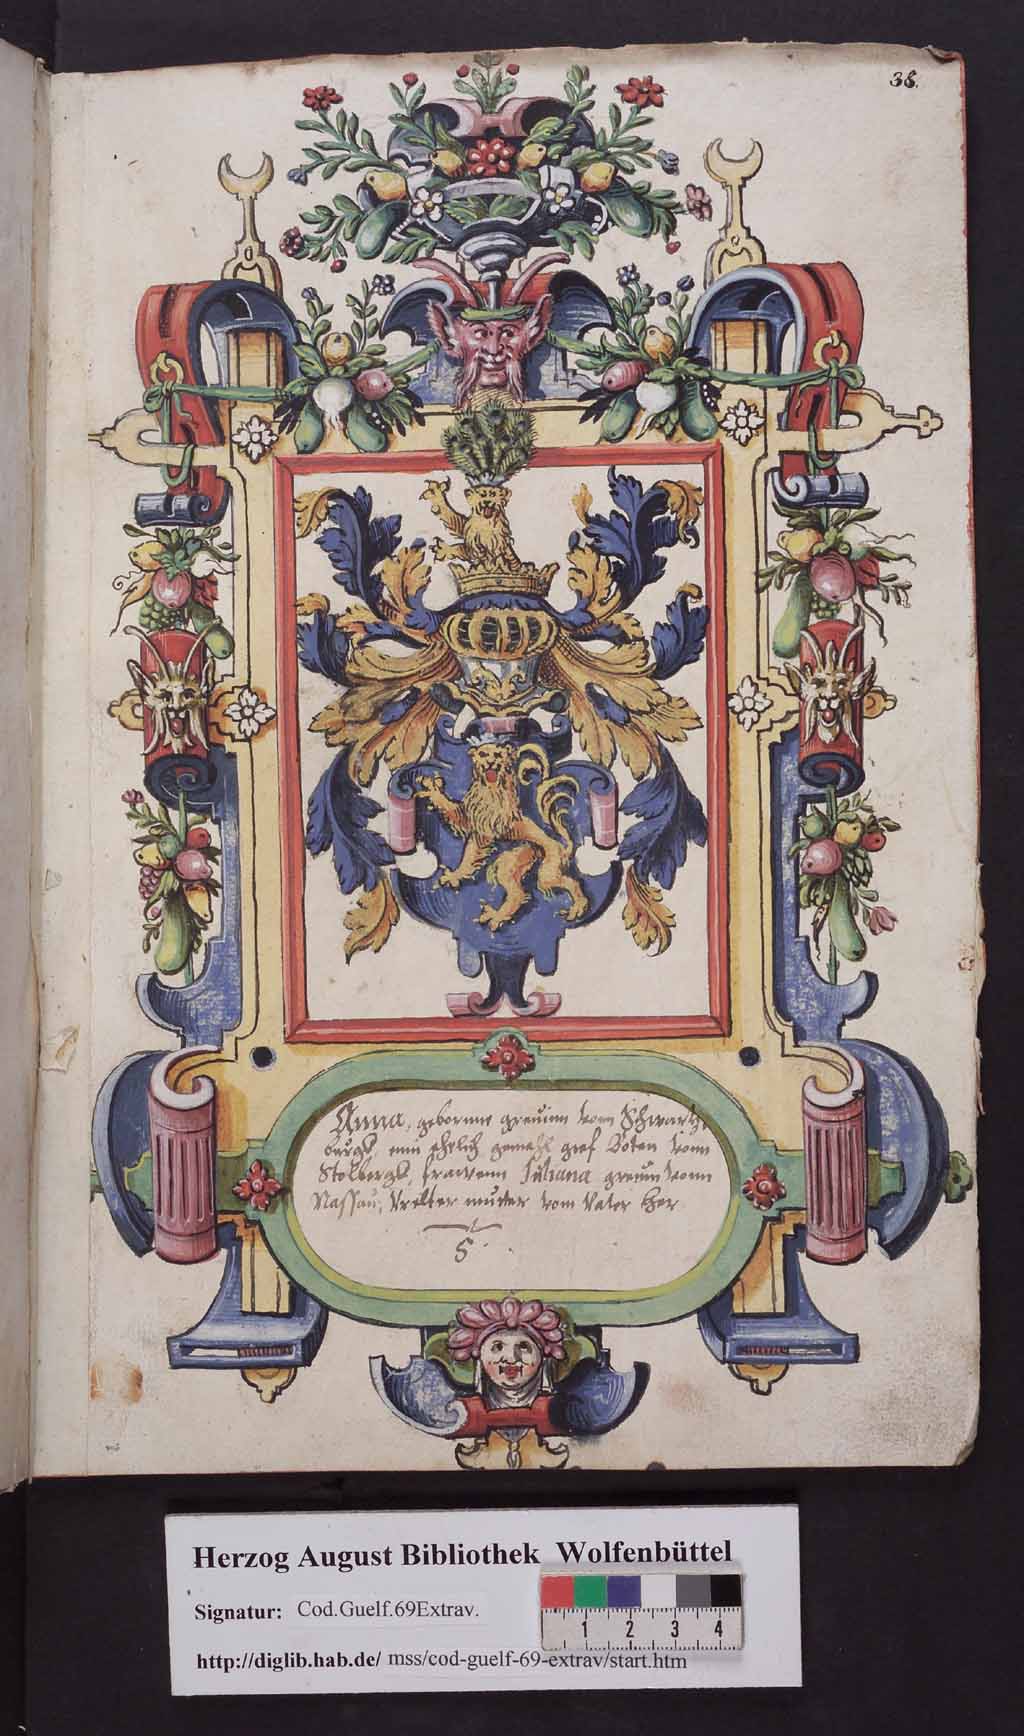 38.
Anna, gebornne greuinn vonn Schwartz,
burgk, einn ehelich gemahl graf Boten vonn
Stolbergk, frawenn Juliana greuinn vonn
Nassau, Vrelter mutter vom Vater her
5.
Herzog August Bibliothek Wolfenbüttel
Signatur: Cod.Guelf.69Extrav.
http://diglib.hab.de/ mss/cod-guelf-69-extrav/start.htm
1 2 3 4